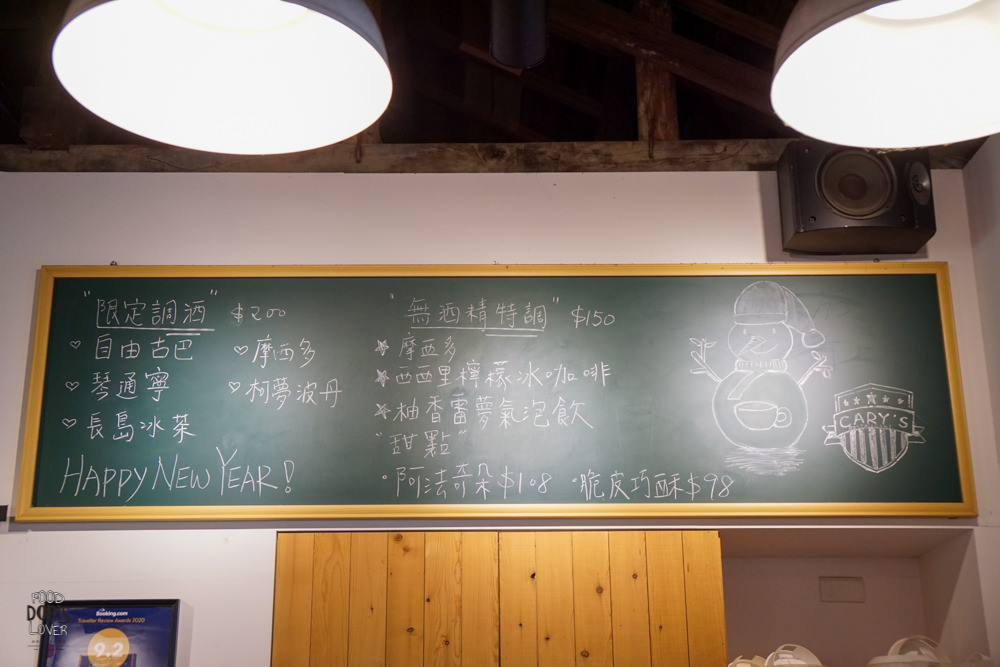 "限定調酒" $200
♡ 自由古巴 ♡ 摩西多
♡ 琴通寧 ♡ 柯夢波丹
♡ 長島冰茶
HAPPY NEW YEAR!
"無酒精特調" $150
摩西多
西西里檸檬冰咖啡
柚香蕾夢氣泡飲
"甜點"
·阿法奇朵$108 ·脆皮巧酥$98
CARY'S
Booking.com
Traveller Review Awards 2020
9.2
FOOD
LOVER